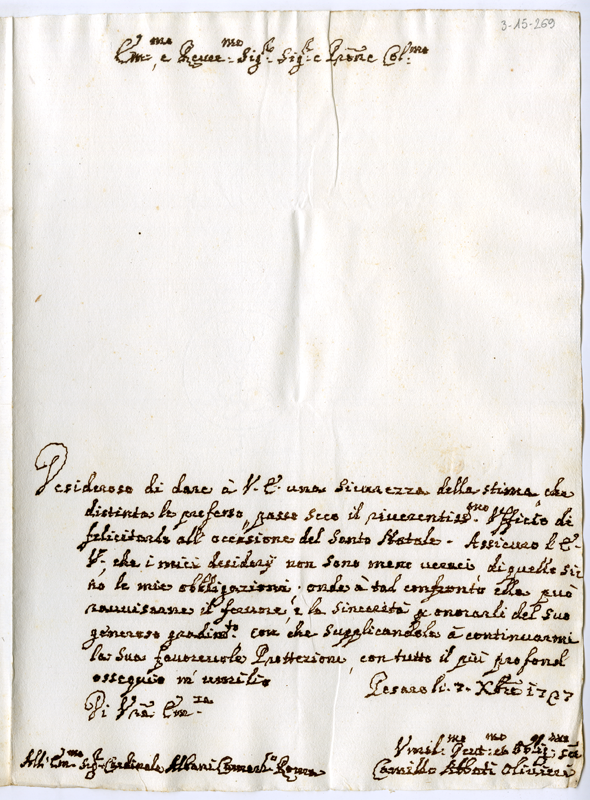 3-15-269
Em.mo, e Rever.mo Sig.re Sig.re e Prõne Col.mo
Desideroso di dare à V. E. una sicurezza della stima, che
distinta le professo, passo seco il riverentiss.mo Ufficio di
felicitarla all'occasione del Santo Natale. Assicuro l'E.
V., che i miei desiderj non sono meno veraci di quello sia
no le mie obbligazioni, onde à tal confronto ella può
ravvisarne il fervore, e la sincerità p onorarli del suo
generoso gradim.to con che supplicandola à continuarmi
la sua favorevole Prottezione, con tutto il più profond
ossequio m'umilio
Pesaro li 7. Xbre 1727
Di V.ra Em.za
Umil.mo Devt.mo et Obblig.
All' Em.mo Sig.r Cardinale Albani Camerl.o Roma
Camillo Abbati Olivieri